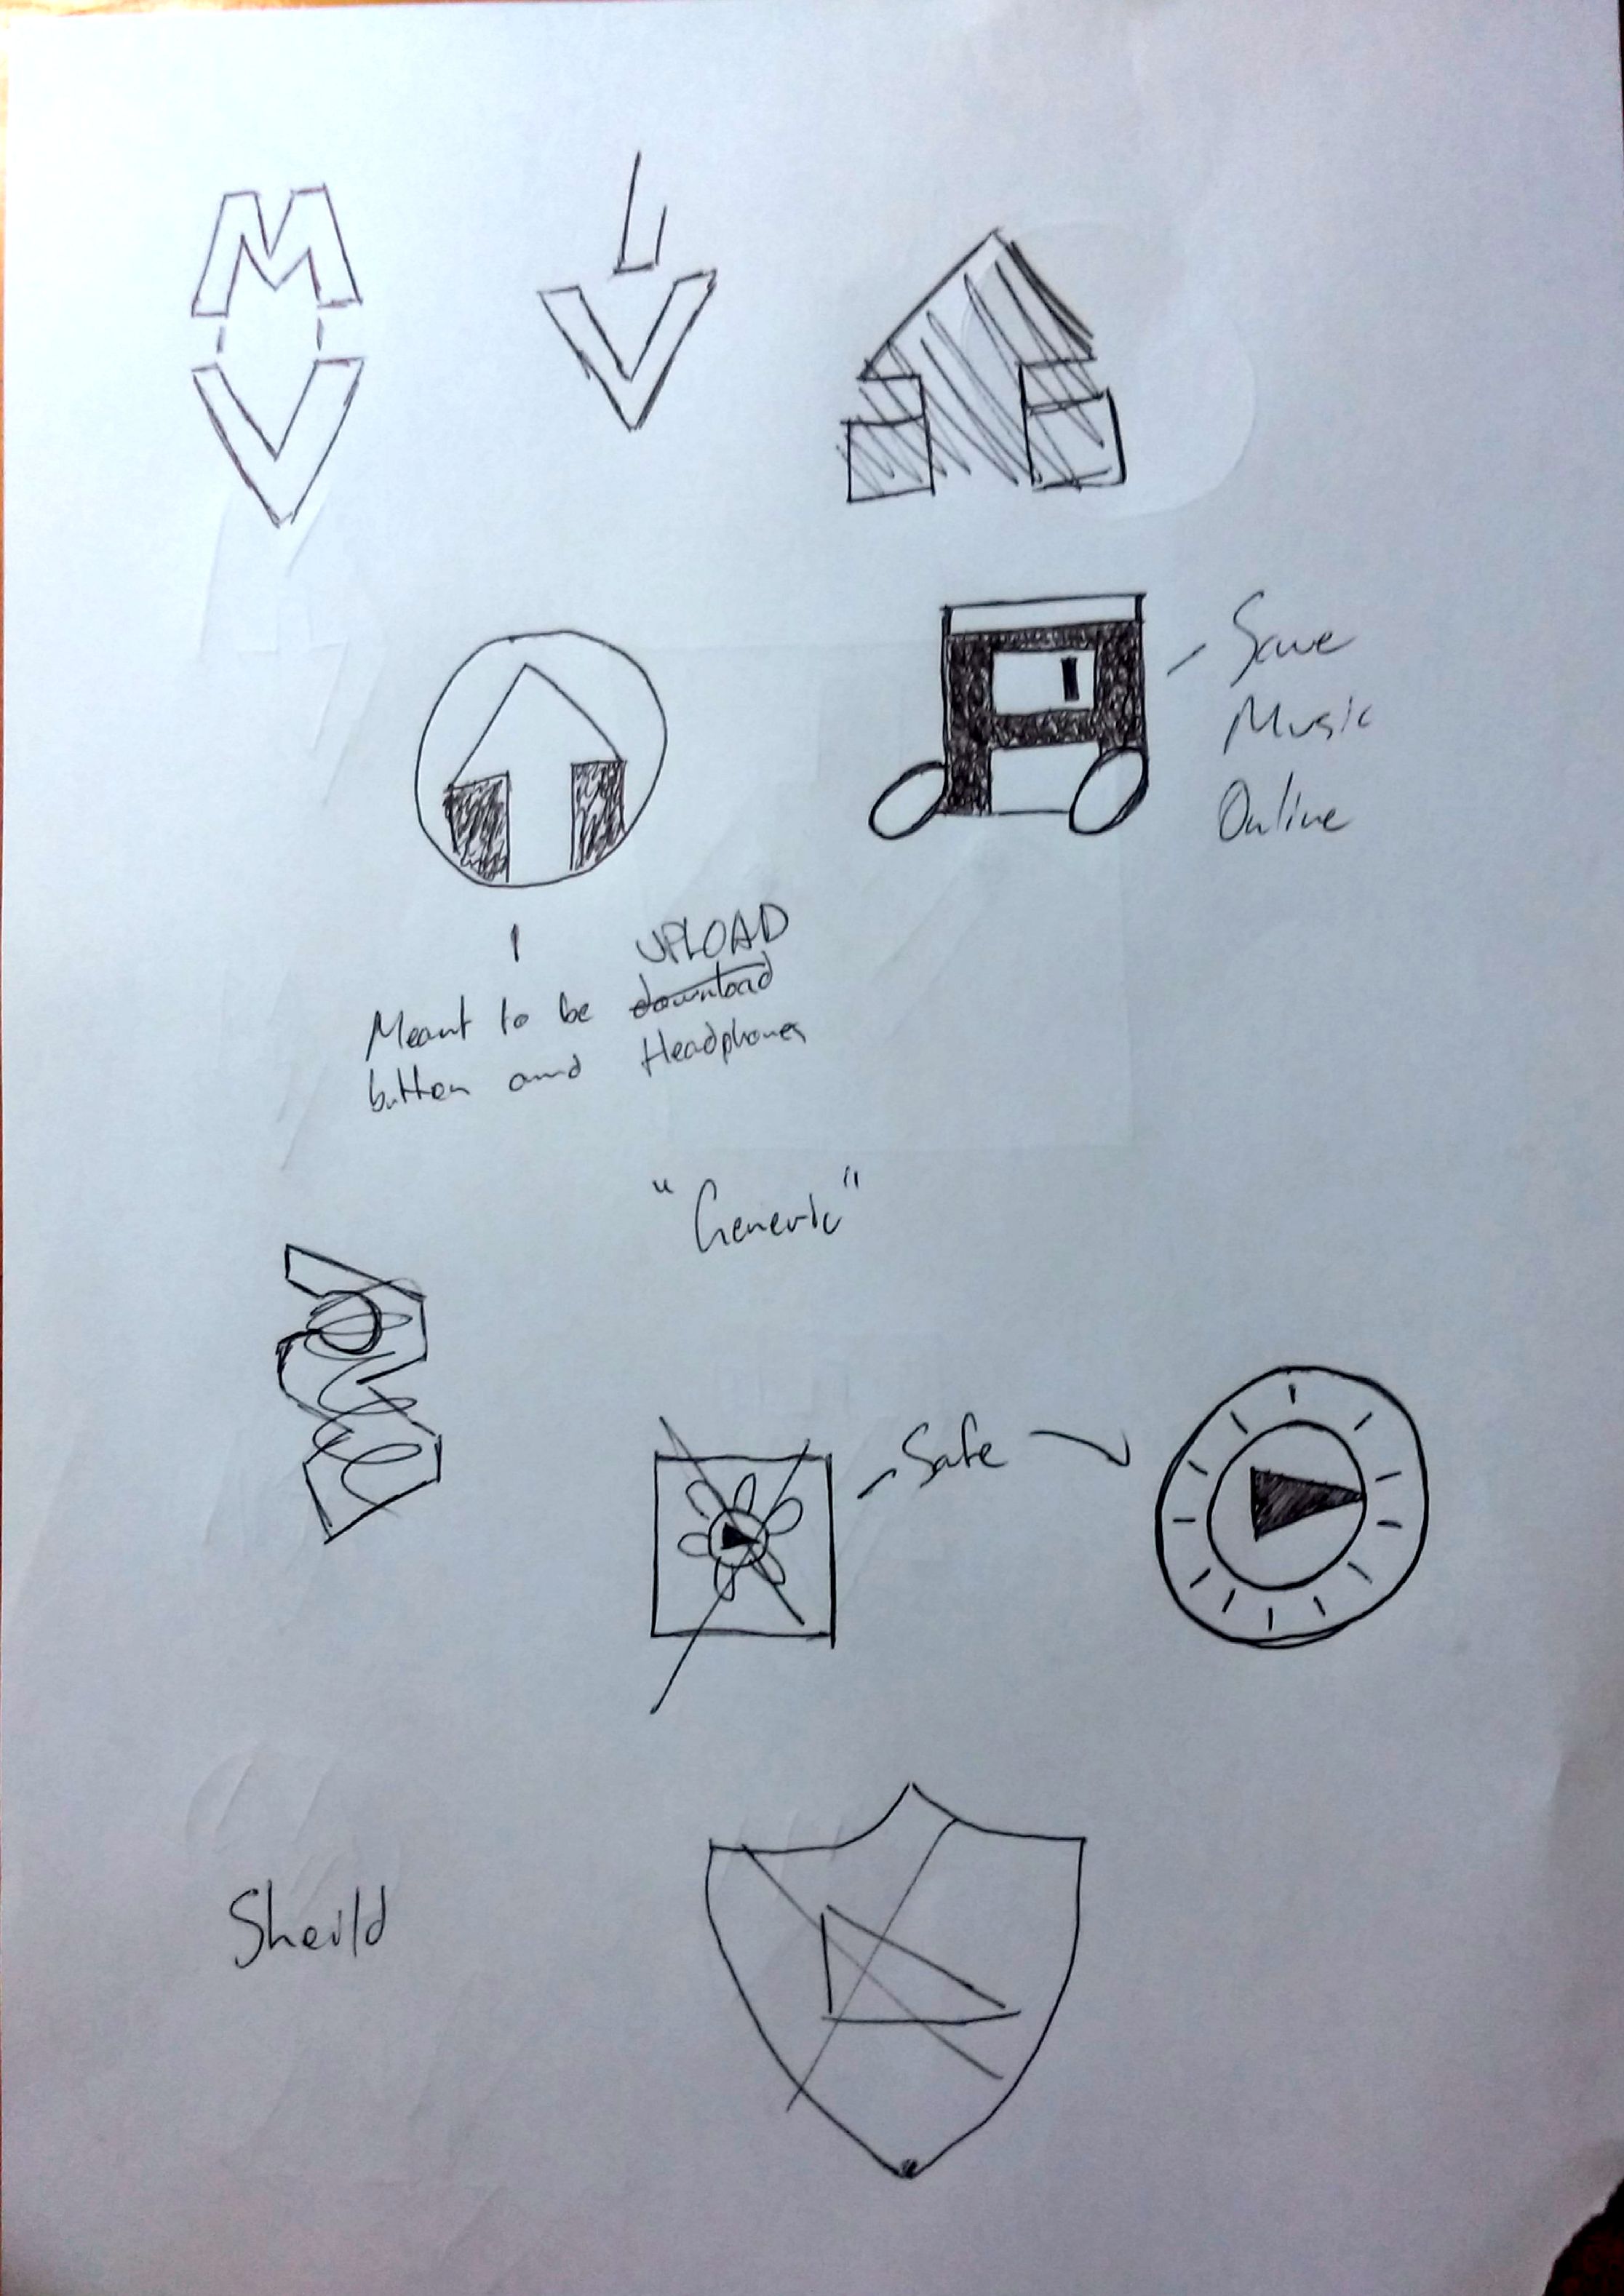 M
V
L
V
Save
Music
Online
UPLOAD
Meant to be download
button and Headphones
"Generic"
Safe
Sheild